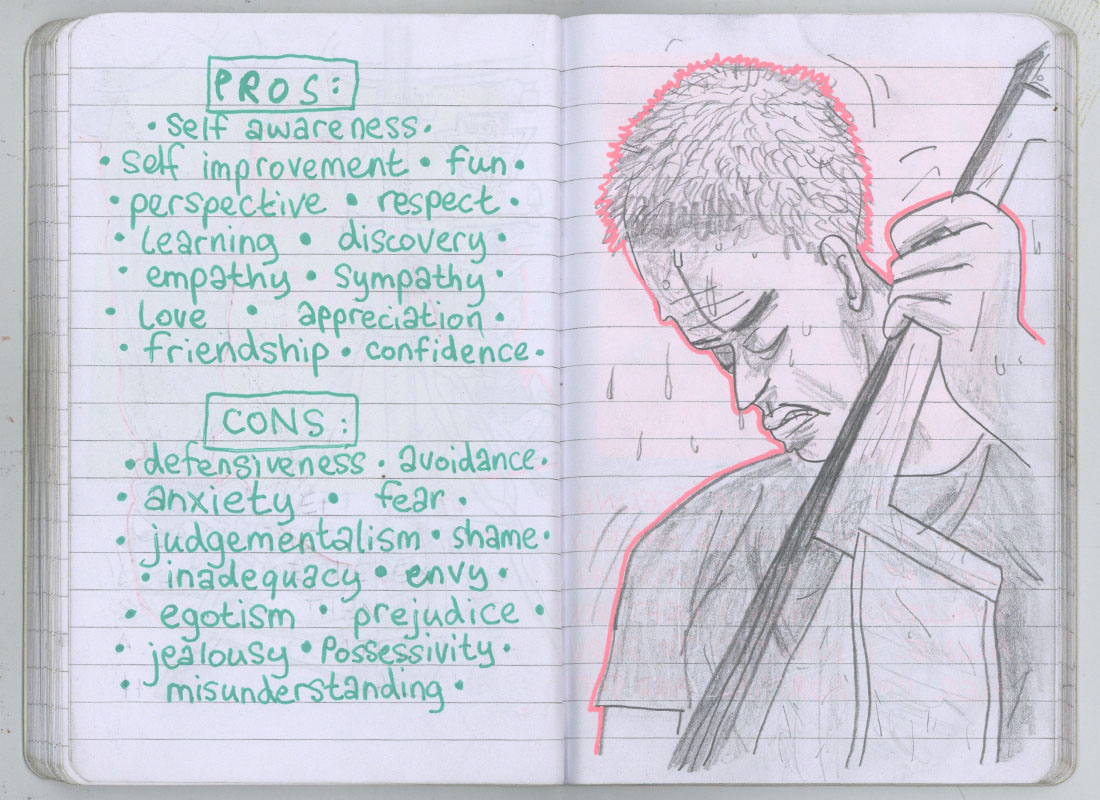 PROS:
• self awareness •
• self improvement • fun •
• perspective • respect •
• learning • discovery •
• empathy • sympathy •
• love • appreciation •
• friendship • confidence •
CONS:
• defensiveness • avoidance •
• anxiety • fear •
• judgementalism • shame •
• inadequacy • envy •
• egotism • prejudice •
• jealousy • possessivity •
• misunderstanding •